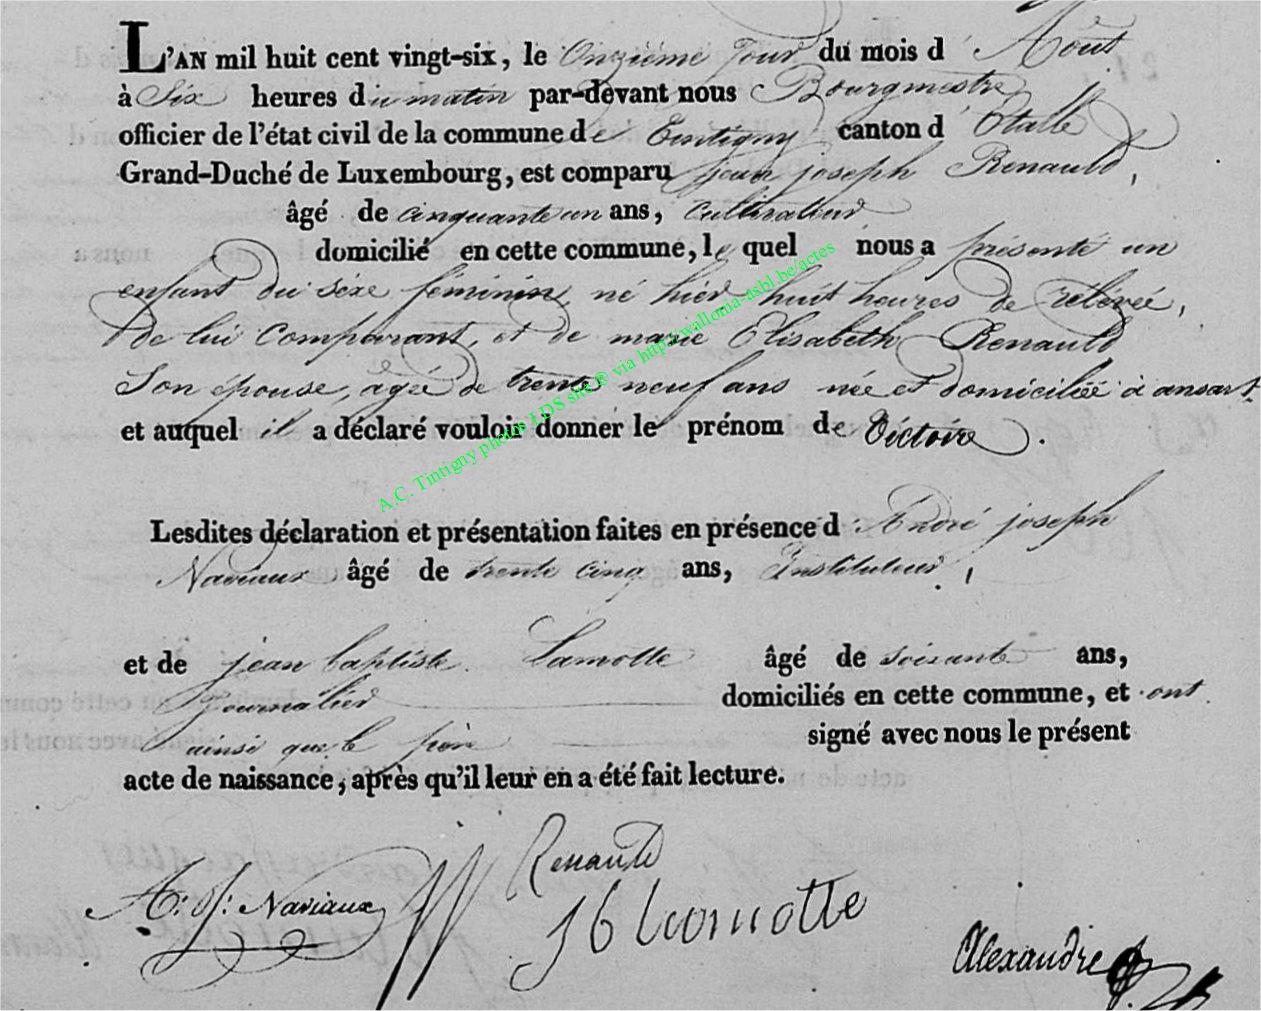 L'AN mil huit cent vingt-six, le Onzième Jour du mois d' Aout
à Six heures du matin par-devant nous Bourgmestre
officier de l'état civil de la commune de Tintigny canton d' Etalle
Grand-Duché de Luxembourg, est comparu jean joseph Renauld,
âgé de cinquante un ans, Cultivateur
domicilié en cette commune, le quel nous a présenté un
enfant du séxe féminin, né hier huit heures de relévée,
de lui Comparant, et de marie Elisabeth Renauld
Son epouse, agée de trente neuf ans née et domiciliée à ansart.
et auquel il a déclaré vouloir donner le prénom de Victoire.
A.C. Tintigny photos LDS site® via http://wallonia-asbl.be/actes
Lesdites déclaration et présentation faites en présence d' André joseph
Naviaux âgé de trente cinq ans, Instituteur,
et de jean baptiste Lamotte âgé de soixante ans,
Journalier domiciliés en cette commune, et ont
ainsi que le père signé avec nous le présent
acte de naissance, après qu'il leur en a été fait lecture.
Renauld
A: J: Naviaux JB Lamotte
Alexandre